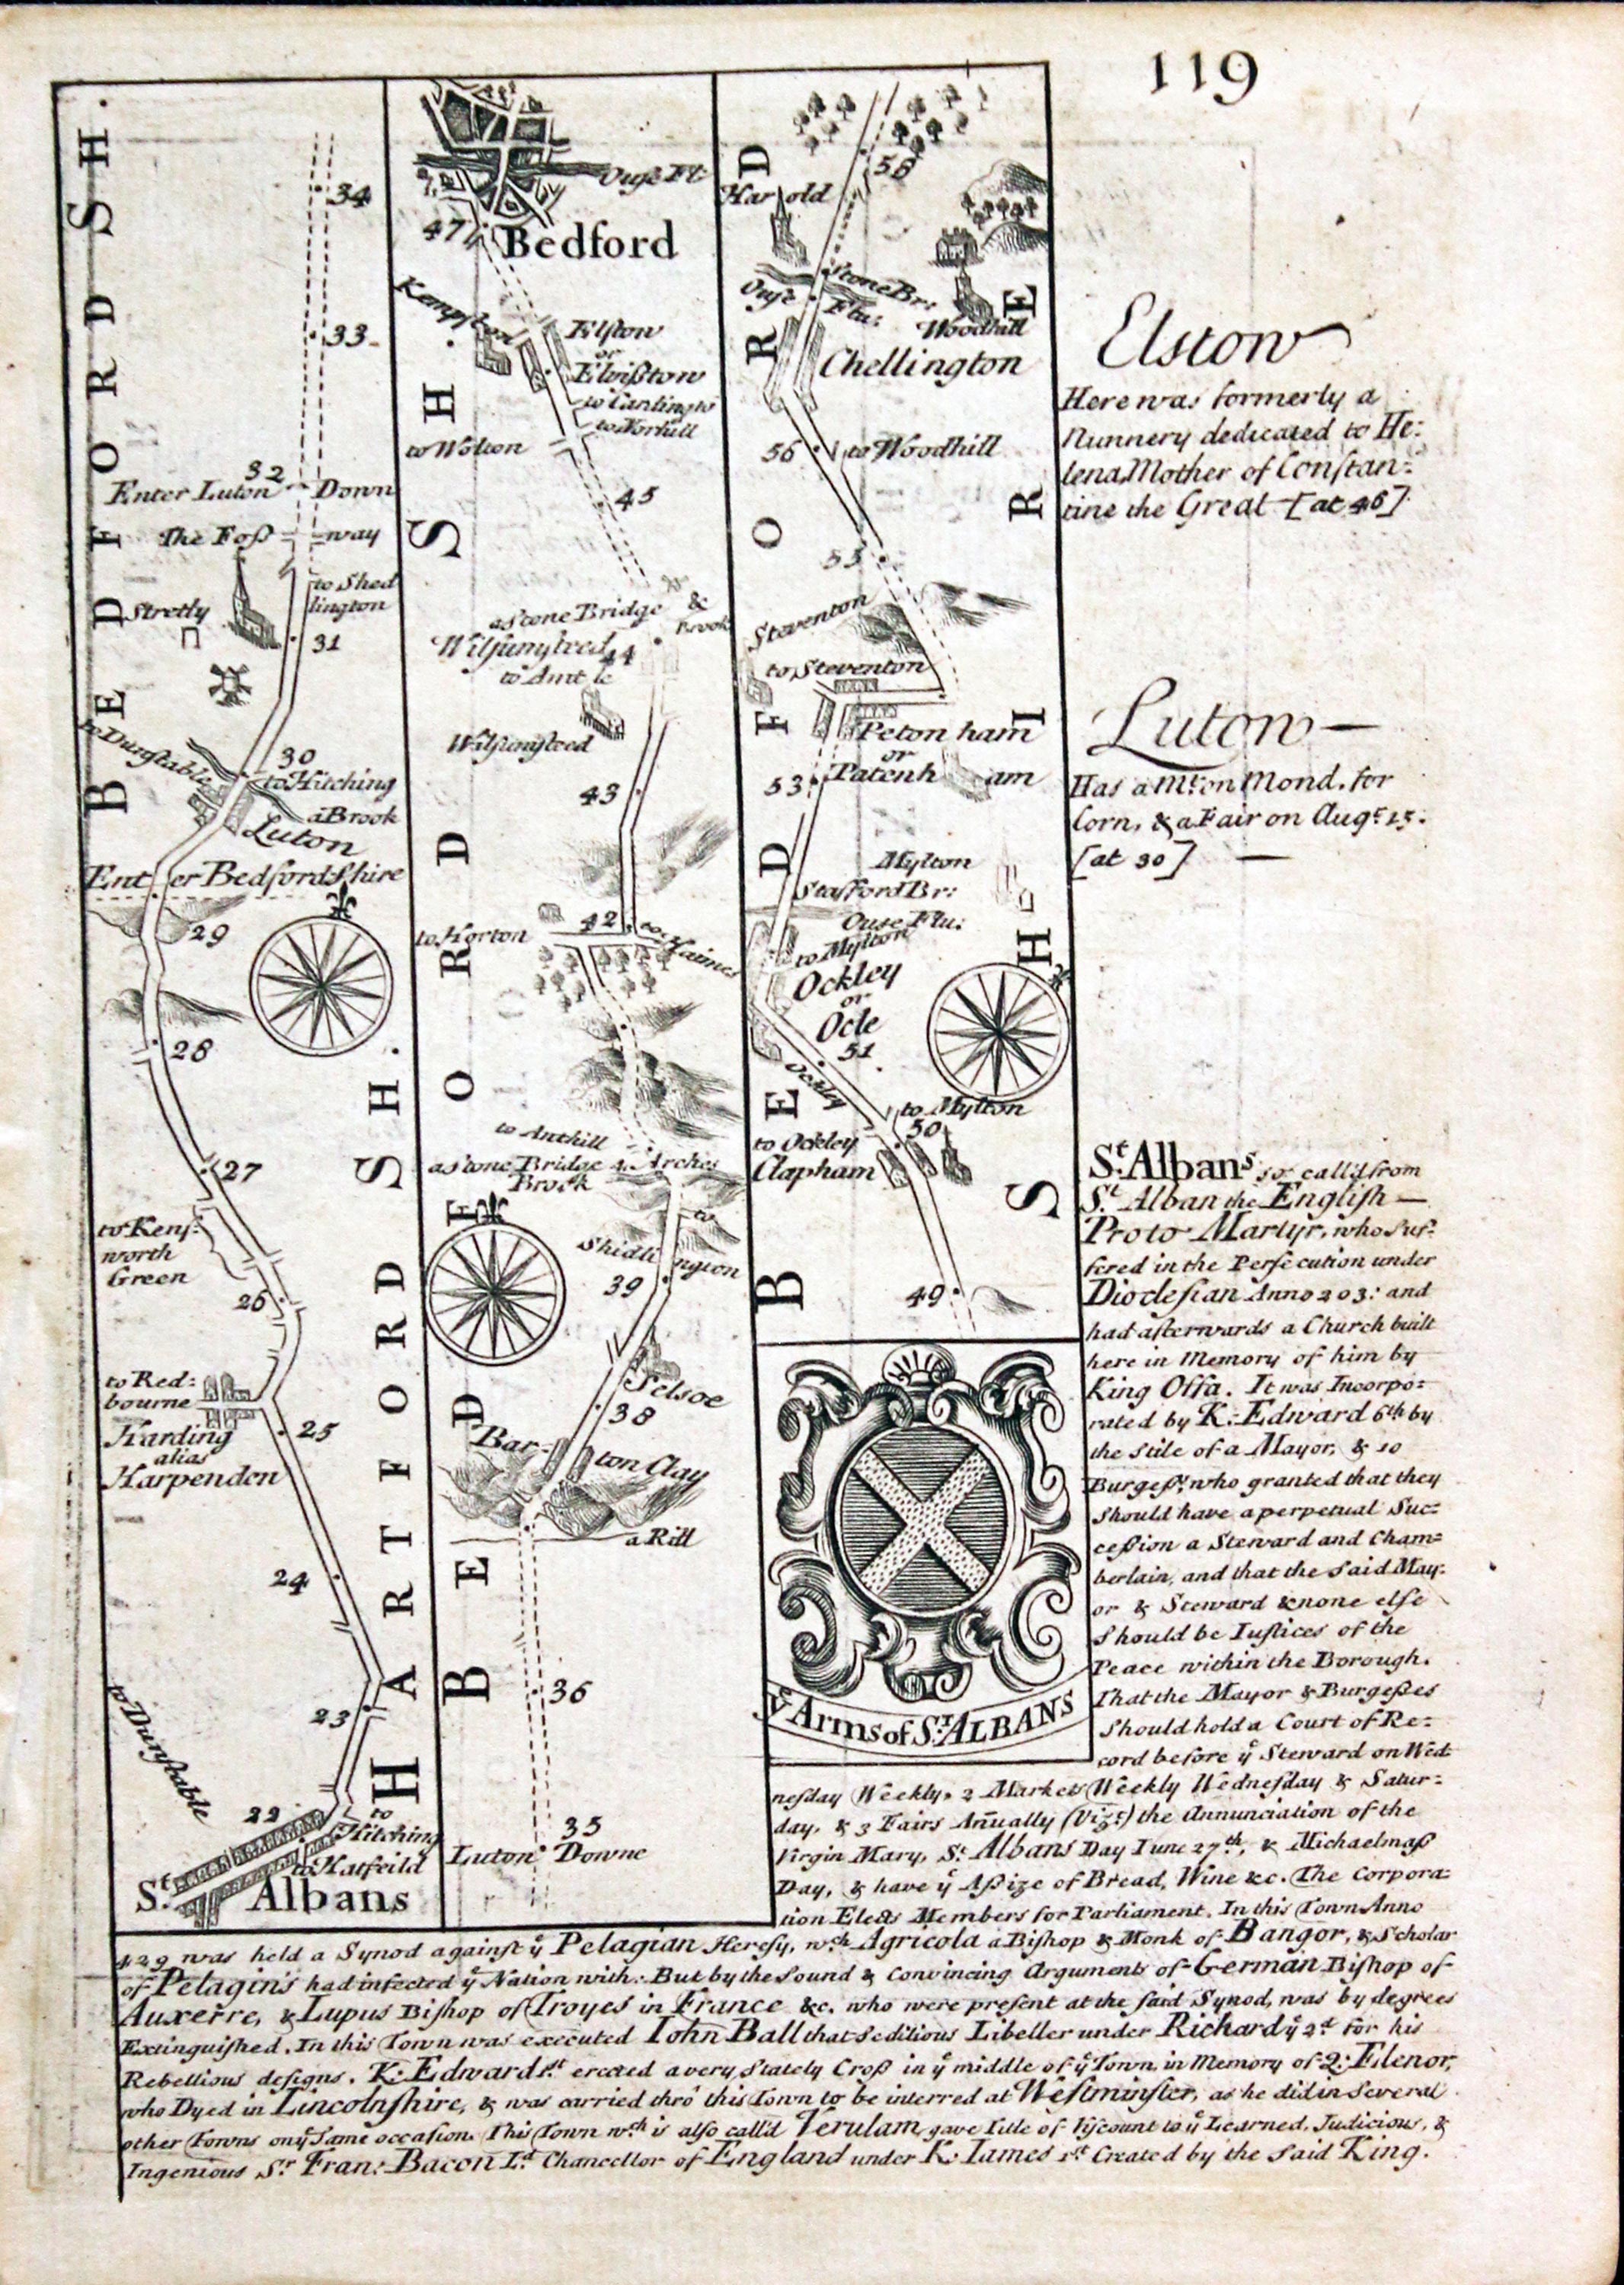 119
BEDFORDSH.
34
33
32
Enter Luton Down
The Foß way
to Shed
lington
Stretly
31
to Dunstable
30
to Hitching
a Brook
Luton
Enter Bedfordshire
29
28
27
to Kens:
worth
Green
26
to Red:
bourne
25
Harding
alias
Harpenden
24
23
to Dunstable
22
to
Hitching
to Hatfeild
St. Albans
HARTFORDSH.
Ouse Fl:
47
Bedford
Kempston
Elston
or
Elvißtow
to Cardingto
to Norhill
to Wotton
45
a Stone Bridge &
Brook
Wilshmsteed
44
to Amt
Wilshmsteed
43
42
to Horton
to Haines
to Anthill
a Stone Bridge 4 Arches
Brook
to
Shidlington
39
Selsoe
38
Barton Clay
a Rill
36
35
Luton Downe
BEDFORDSH.
58
Harold
Stone Br:
Ouse Flu:
Woodhill
Chellington
56
to Woodhill
55
Steventon
to Steventon
Petonham
or
Patenham
53
Mylton
Stafford Br:
Ouse Flu:
to Mylton
Ockley
or
Ocle
51
Ockley
to Mylton
50
to Ockley
Clapham
49
BEDFORD
SHIRE
Ye Arms of St. ALBANS
Elstow
Here was formerly a
Nunnery dedicated to He:
lena, Mother of Constan:
tine the Great [at 46]
Luton
Has a Mt. on Mond. for
Corn, & a Fair on Augt. 15.
[at 30]
St. Albans so call'd from
St. Alban the English
Proto Martyr, who suf:
fered in the Persecution under
Dioclesian Anno 203: and
had afterwards a Church built
here in Memory of him by
King Offa. It was Incorpo:
rated by K: Edward 6th by
the stile of a Mayor, & 10
Burgeßs. who granted that they
should have a perpetual Suc=
ceßion a Steward and Cham=
berlain, and that the said May:
or & Steward & none else
should be Iustices of the
Peace within the Borough.
That the Mayor & Burgeßes
should hold a Court of Re:
cord before ye Steward on Wed:
nesday Weekly, 2 Markets Weekly Wednesday & Satur:
day, & 3 Fairs Anually (Vizt.) the Annunciation of the
Virgin Mary, St. Albans Day Iune 27th, & Michaelmaß
Day, & have ye Aßize of Bread, Wine &c. The Corpora:
tion Elects Members for Parliament. In this Town Anno
429 was held a Synod against ye Pelagian Heresy, wch Agricola a Bishop & Monk of Bangor, & Scholar
of Pelagin's had infected ye Nation with: But by the Sound & Convincing Arguments of German Bishop of
Auxerre, & Lupus Bishop of Troyes in France &c. who were present at the said Synod, was by degrees
Extinguished. In this Town was executed Iohn Ball that seditious Libeller under Richard ye 2d for his
Rebellious designs. K: Edward 1st. erected a very Stately Croß in ye middle of ye Town, in Memory of Q: Elenor,
who Dyed in Lincolnshire, & was carried thro' this Town to be interred at Westminster, as he did in Several
other Towns on ye Same occasion. This Town wch is also call'd Verulam, gave Title of Viscount to ye Learned, Judicious, &
Ingenious Sr. Fran: Bacon Ld. Chancellor of England under K: Iames 1st Created by the said King.